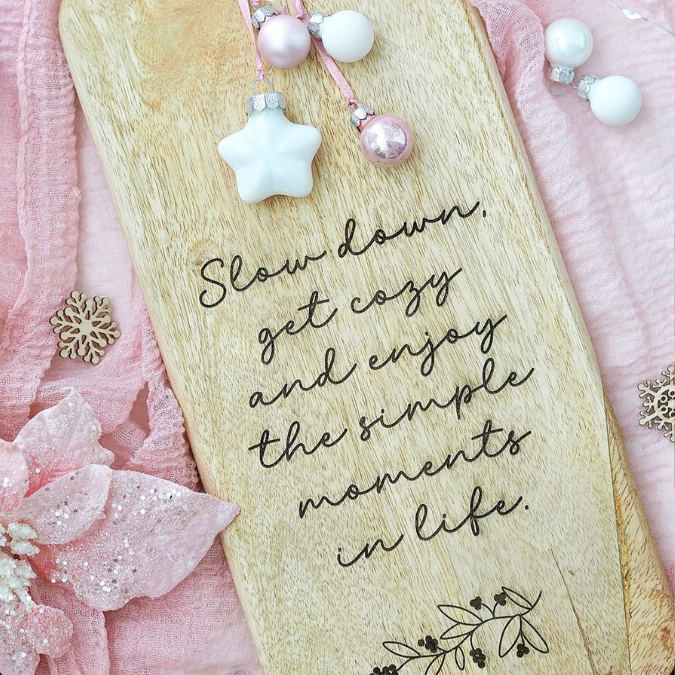 Slow down,
get cozy
and enjoy
the simple
moments
in life.